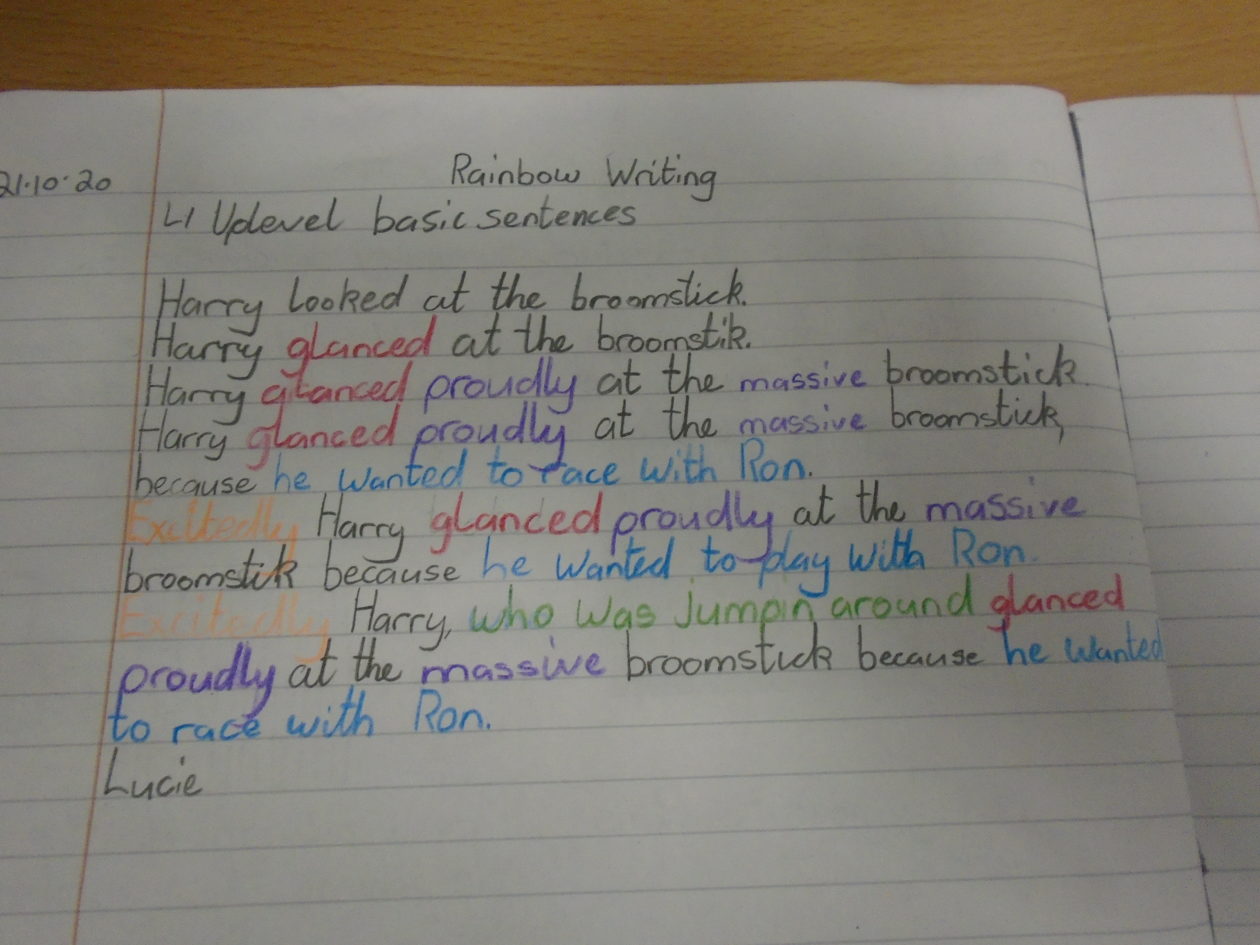 21.10.20
Rainbow Writing
LI Uplevel basic sentences
Harry looked at the broomstick.
Harry glanced at the broomstik.
Harry glanced proudly at the massive broomstick.
Harry glanced proudly at the massive broomstick,
because he wanted to race with Ron.
Excitedly Harry glanced proudly at the massive
broomstik because he wanted to play with Ron.
Excitedly Harry, who was jumpin around glanced
proudly at the massive broomstick because he wanted
to race with Ron.
Lucie